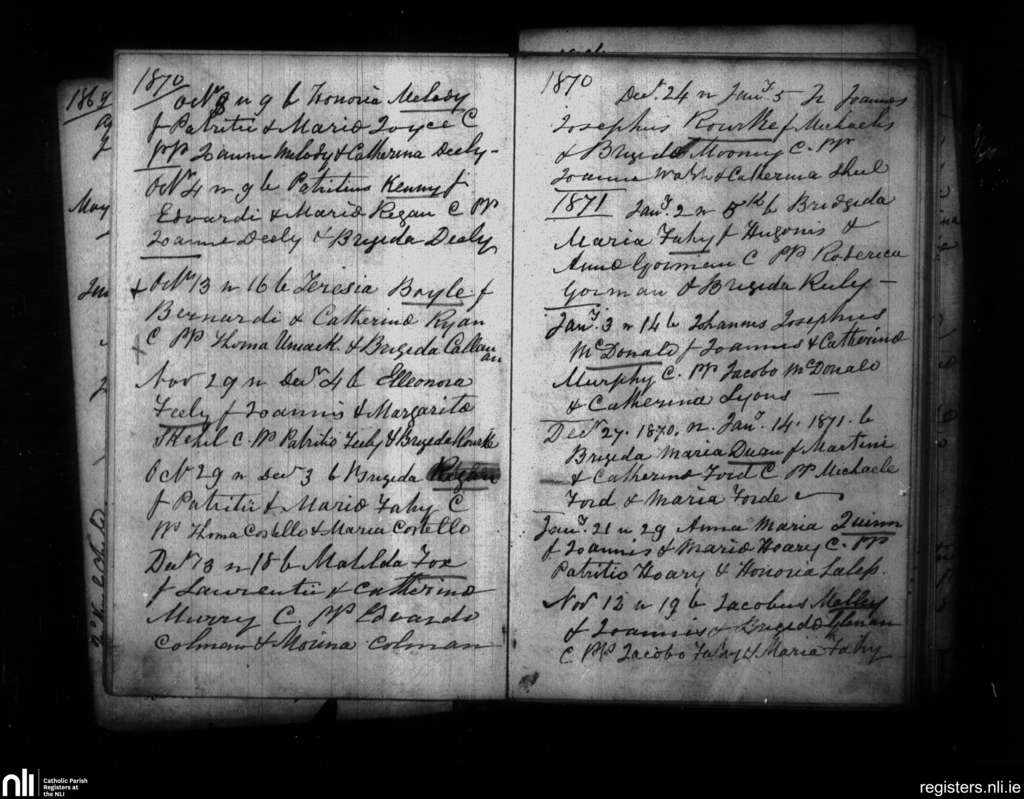 1869
May
Jun
1870
Octr 3 n 9 b Honoria Melody
f Patritii & Maria Joyce C
PP Joanne Melody & Catherina Deely -
Octr 4 n 9 b Patritius Kenny f
Edvardi & Maria Regan C PP
Joanne Deely & Brigeda Dealy
+ Octr 13 n 16 b Teresia Boyle f
Bernardi & Catherina Ryan
C PP Thoma & Brigeda Callanan
Nov 29 n Decr 4 b Elleonora
Feely f Joannis & Margarita
Skehil C. PP Patritio Feely & Brigeda Rourke
Octr 29 n Decr 3 b Brigeda Regan
f Patritii & Maria Fahy C
PP Thoma Costello & Maria Costello
Decr 3 n 18 b Matilda Fox
f Laurentii & Catherina
Murry C. PP Edvardo
Colman & Colman
1870
Decr. 24 n Jany 5 Joannes
Josephus Rourke f Michaelis
& Brigeda Mooney C. PP
Joanne Walsh & Catherina
1871 Jany. 2 n 5th b Bridgida
Maria Fahy f Hugonis &
Anna Gorman C PP Roderica
Gorman & Brigida -
Jany. 3 n 14 b Johannus Josephus
McDonald f Joannes & Catherina
Murphy C. PP Jacobo McDonald
& Catherina Lyons -
Decr 27. 1870. n. Jany. 14. 1871. b
Brigida Maria Duan f Martini
& Catherina Ford C PP Michaele
Ford & Maria Forde
Jany. 21 n 29 Anna Maria Quinn
f Joannis & Maria Hoary C. PP
Patritio Hoary & Honoria
Nov 12 n 19 b Jacobus Melley
f Joannis & Brigida
C PP Jacobo Fahy & Maria Fahy
nli
Catholic Parish
Registers at
the NLI
registers.nli.ie